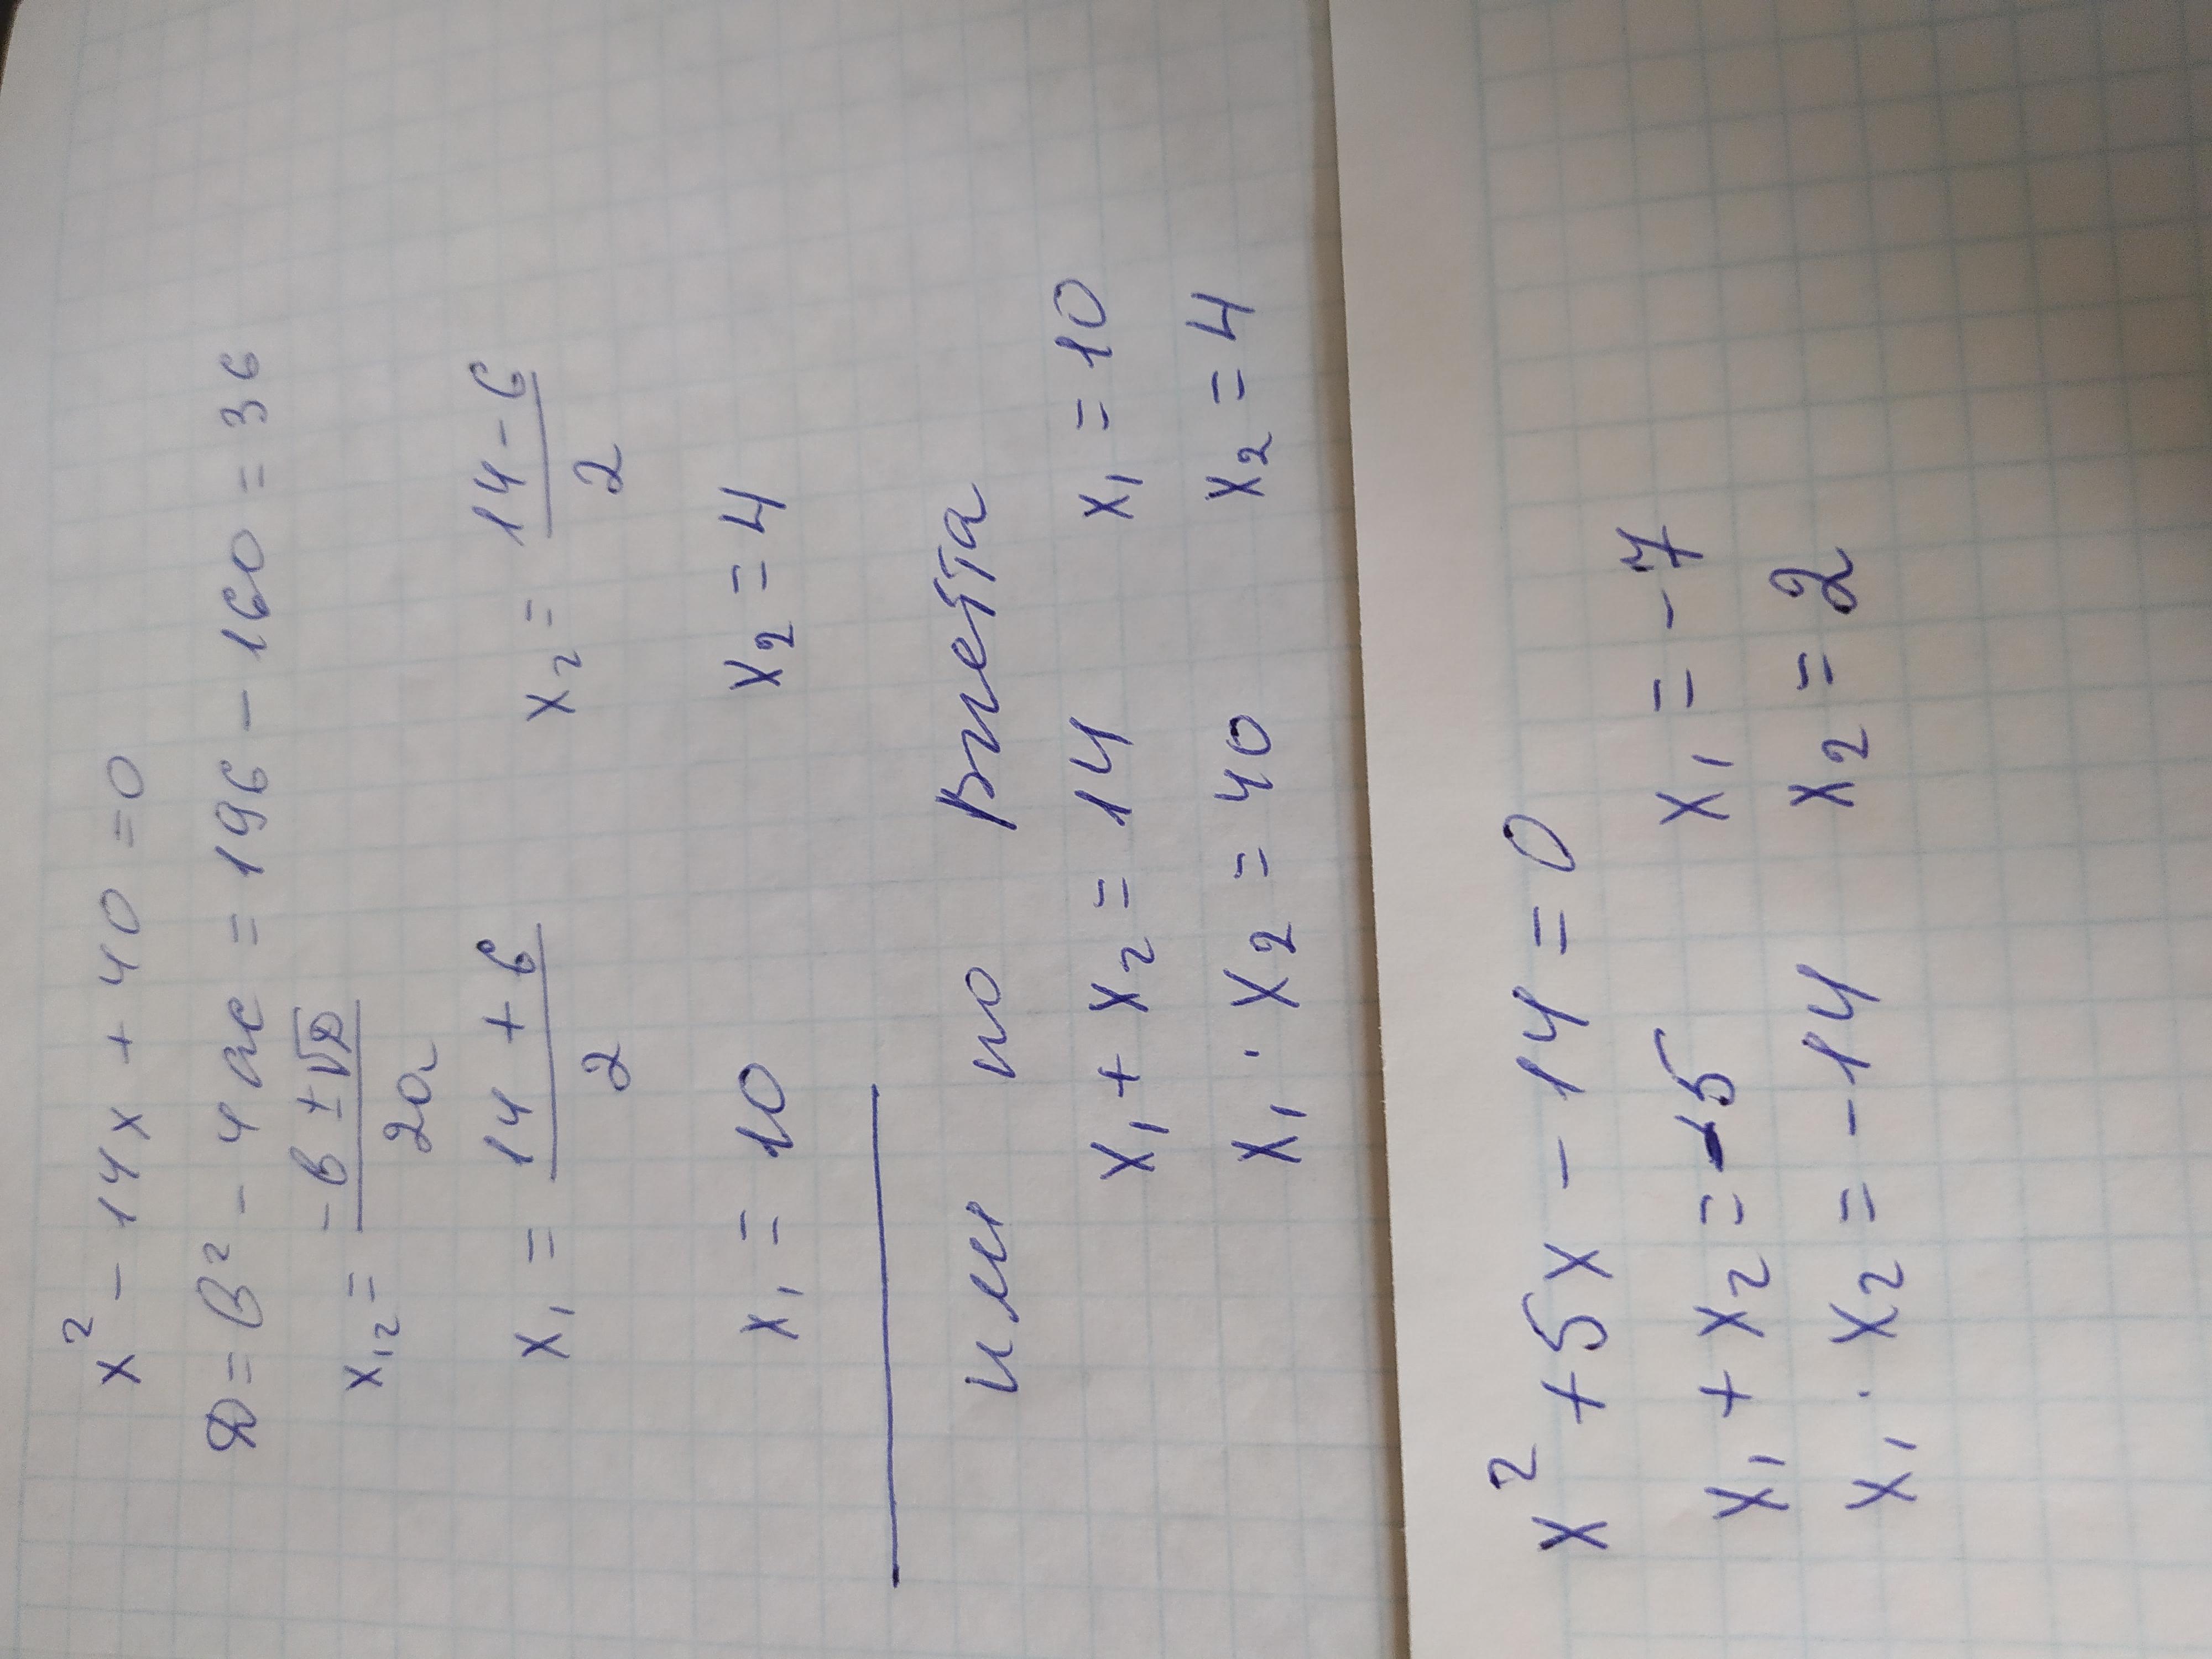 x² - 14x + 40 = 0
D = B² - 4ac = 196 - 160 = 36
x₁₂ = (-B ± √D) / 2a
x₁ = (14 + 6) / 2   x₂ = (14 - 6) / 2
x₁ = 10   x₂ = 4
или по Виета
x₁ + x₂ = 14   x₁ = 10
x₁ · x₂ = 40   x₂ = 4
x² + 5x - 14 = 0
x₁ + x₂ = -5   x₁ = -7
x₁ · x₂ = -14   x₂ = 2